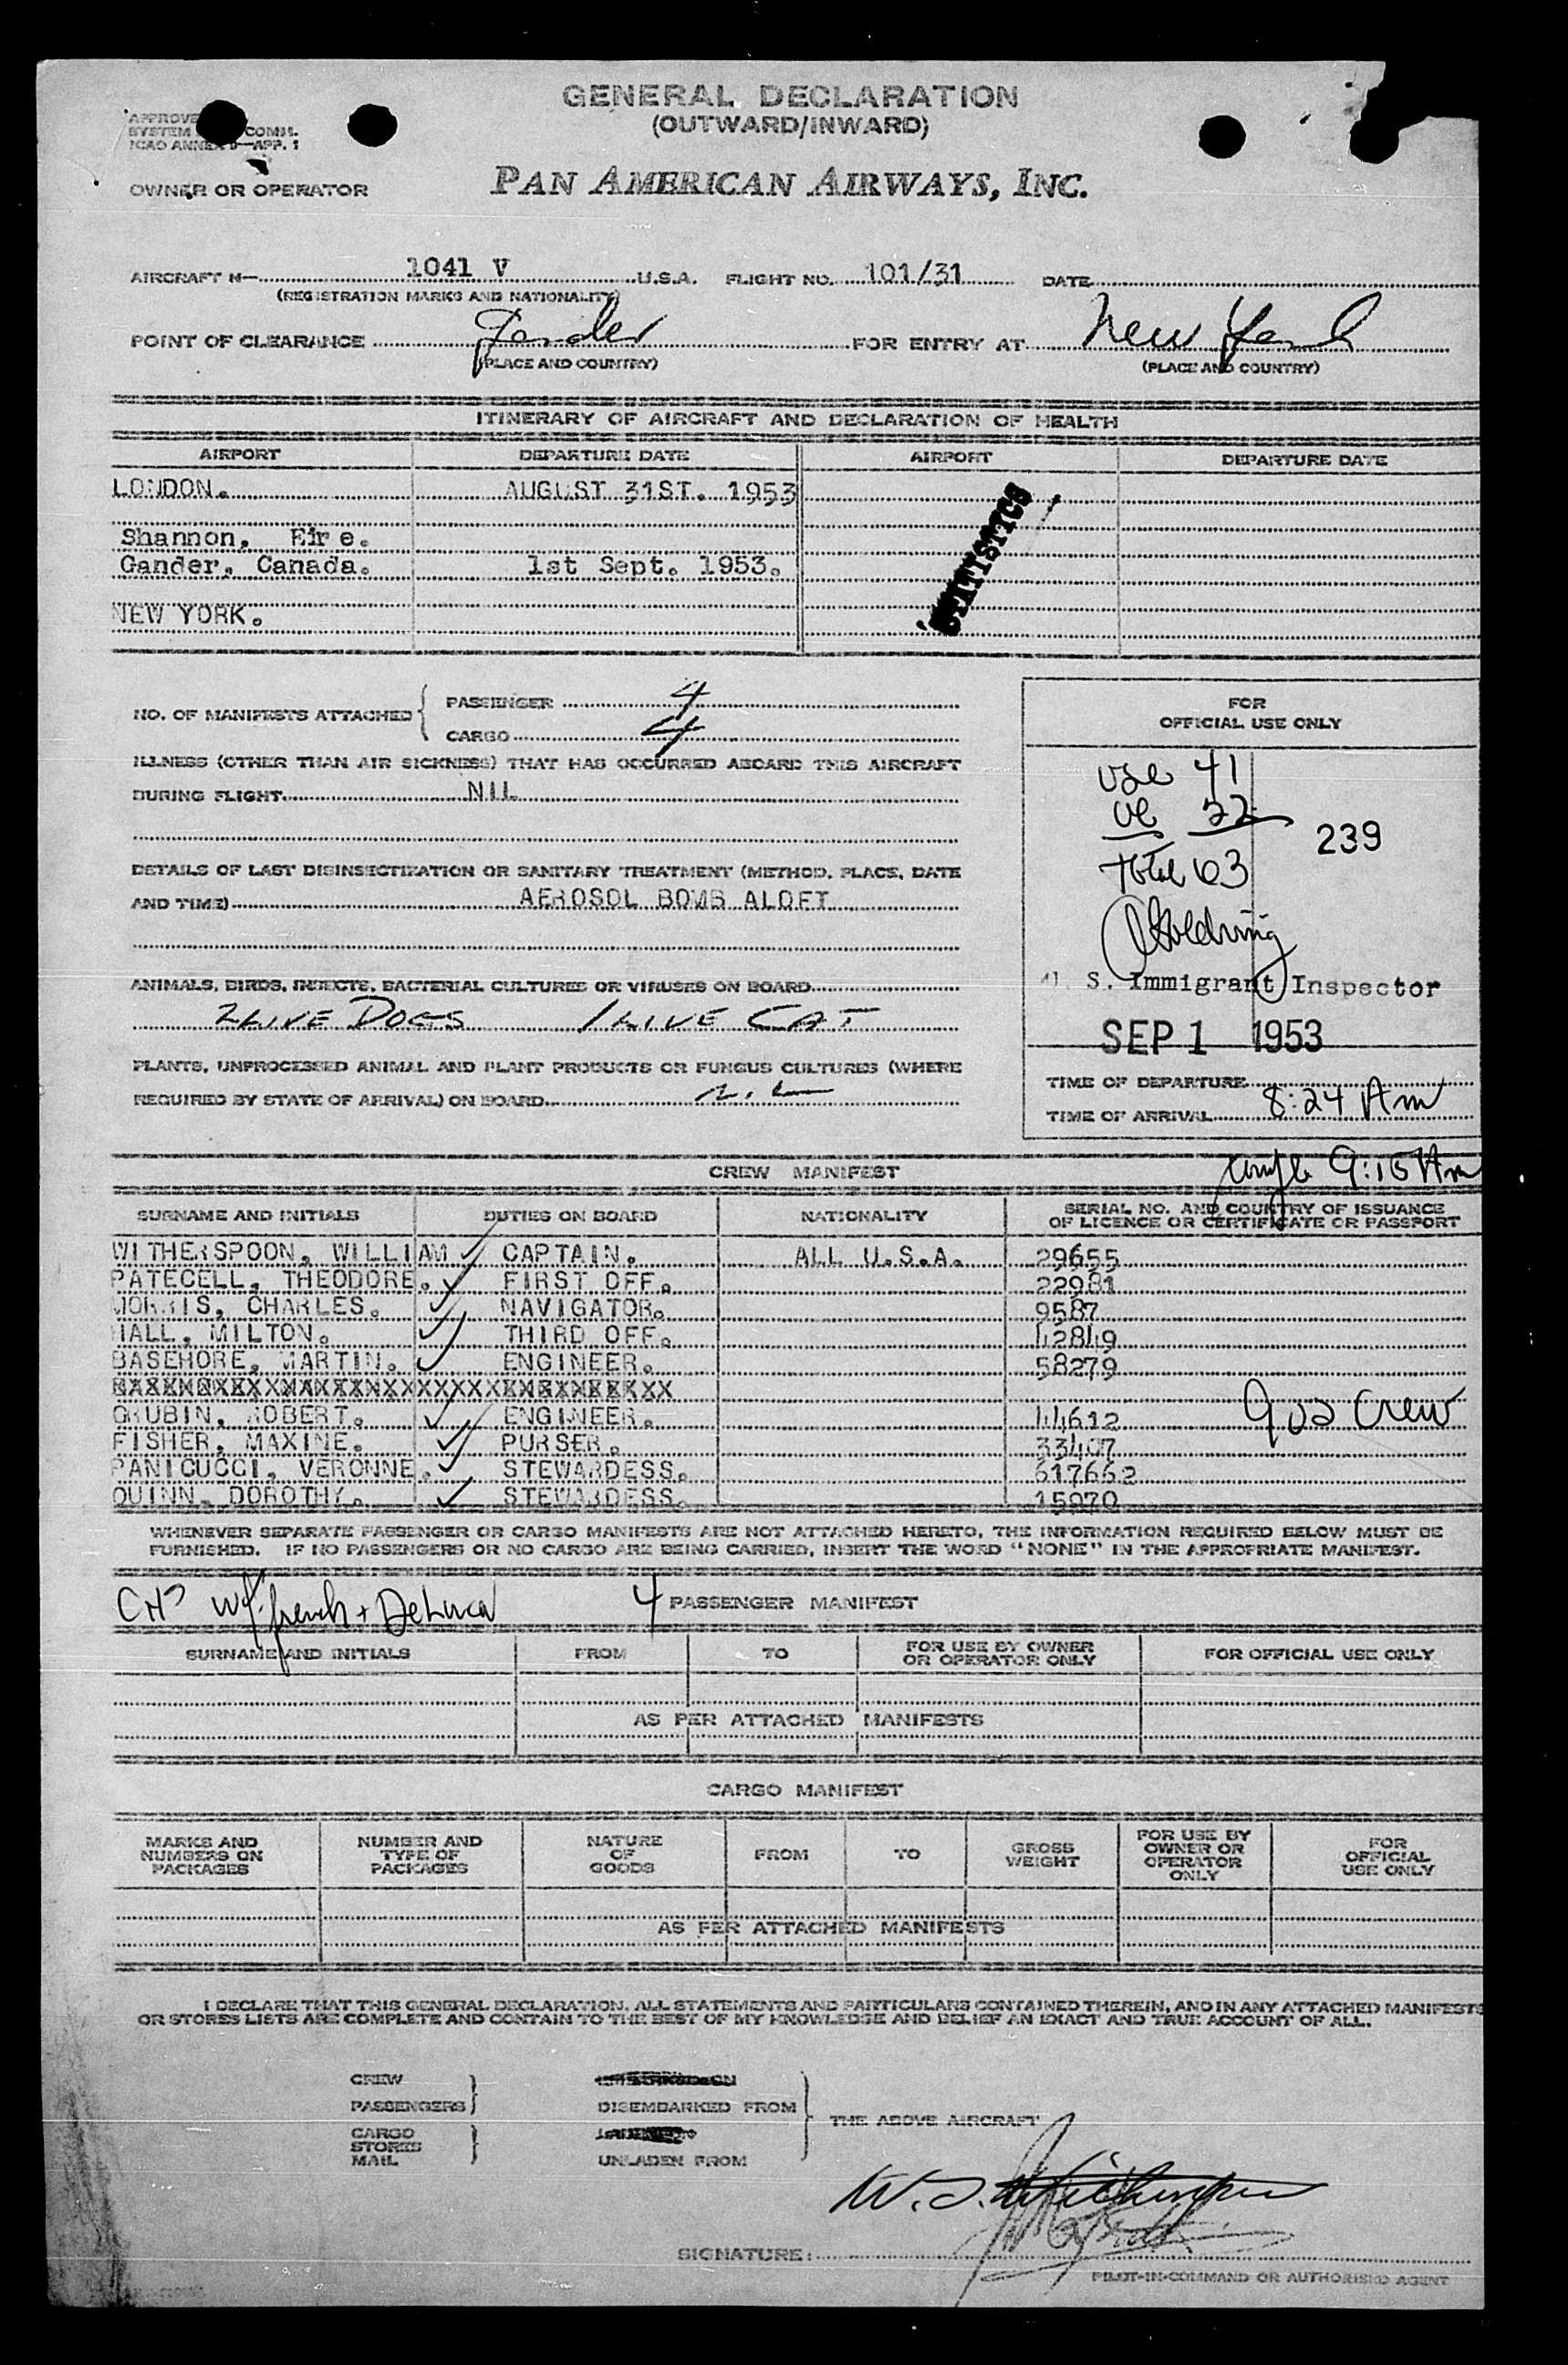 GENERAL DECLARATION
(OUTWARD/INWARD)
APPROVE
SYSTEM COMM.
ICAO ANNEX 9—APP. 1
OWNER OR OPERATOR PAN AMERICAN AIRWAYS, INC.
AIRCRAFT N— 1041 V U.S.A. FLIGHT NO. 101/31 DATE
(REGISTRATION MARKS AND NATIONALITY)
POINT OF CLEARANCE Gander FOR ENTRY AT New York
(PLACE AND COUNTRY) (PLACE AND COUNTRY)
ITINERARY OF AIRCRAFT AND DECLARATION OF HEALTH
AIRPORT DEPARTURE DATE AIRPORT DEPARTURE DATE
LONDON. AUGUST 31ST. 1953
STATISTICS
Shannon, Eire.
Gander, Canada. 1st Sept. 1953.
NEW YORK.
NO. OF MANIFESTS ATTACHED
PASSENGER 4
CARGO 4
ILLNESS (OTHER THAN AIR SICKNESS) THAT HAS OCCURRED ABOARD THIS AIRCRAFT
DURING FLIGHT NIL
DETAILS OF LAST DISINSECTIZATION OR SANITARY TREATMENT (METHOD, PLACE, DATE
AND TIME) AEROSOL BOMB ALOFT
ANIMALS, BIRDS, INSECTS, BACTERIAL CULTURES OR VIRUSES ON BOARD
2 LIVE DOGS 1 LIVE CAT
PLANTS, UNPROCESSED ANIMAL AND PLANT PRODUCTS OR FUNGUS CULTURES (WHERE
REQUIRED BY STATE OF ARRIVAL) ON BOARD NIL
FOR
OFFICIAL USE ONLY
USC 41
UC 22
239
Total 63
Goldring
U. S. Immigrant Inspector
SEP 1 1953
TIME OF DEPARTURE
TIME OF ARRIVAL 8:24 Am
9:15 Am
CREW MANIFEST
SURNAME AND INITIALS DUTIES ON BOARD NATIONALITY SERIAL NO. AND COUNTRY OF ISSUANCE
OF LICENCE OR CERTIFICATE OR PASSPORT
WITHERSPOON, WILLIAM CAPTAIN. ALL U.S.A. 29655
PATECELL, THEODORE. FIRST OFF. 22981
MORRIS, CHARLES. NAVIGATOR. 9587
HALL, MILTON. THIRD OFF. 42849
BASEHORE, MARTIN. ENGINEER. 58279
GRUBIN, ROBERT. ENGINEER. 44612 9 usa Crew
FISHER, MAXINE. PURSER. 33407
PANICUCCI, VERONNE. STEWARDESS. 617662
QUINN, DOROTHY. STEWARDESS. 15970
WHENEVER SEPARATE PASSENGER OR CARGO MANIFESTS ARE NOT ATTACHED HERETO, THE INFORMATION REQUIRED BELOW MUST BE
FURNISHED. IF NO PASSENGERS OR NO CARGO ARE BEING CARRIED, INSERT THE WORD "NONE" IN THE APPROPRIATE MANIFEST.
french + DeLuca 4 PASSENGER MANIFEST
SURNAME AND INITIALS FROM TO FOR USE BY OWNER
OR OPERATOR ONLY FOR OFFICIAL USE ONLY
AS PER ATTACHED MANIFESTS
CARGO MANIFEST
MARKS AND
NUMBERS ON
PACKAGES
NUMBER AND
TYPE OF
PACKAGES
NATURE
OF
GOODS
FROM
TO
GROSS
WEIGHT
FOR USE BY
OWNER OR
OPERATOR
ONLY
FOR
OFFICIAL
USE ONLY
AS PER ATTACHED MANIFESTS
I DECLARE THAT THIS GENERAL DECLARATION, ALL STATEMENTS AND PARTICULARS CONTAINED THEREIN, AND IN ANY ATTACHED MANIFESTS
OR STORES LISTS ARE COMPLETE AND CONTAIN TO THE BEST OF MY KNOWLEDGE AND BELIEF AN EXACT AND TRUE ACCOUNT OF ALL.
CREW
PASSENGERS DISEMBARKED FROM
THE ABOVE AIRCRAFT
CARGO
STORES
MAIL UNLADEN FROM
SIGNATURE:
PILOT-IN-COMMAND OR AUTHORISED AGENT